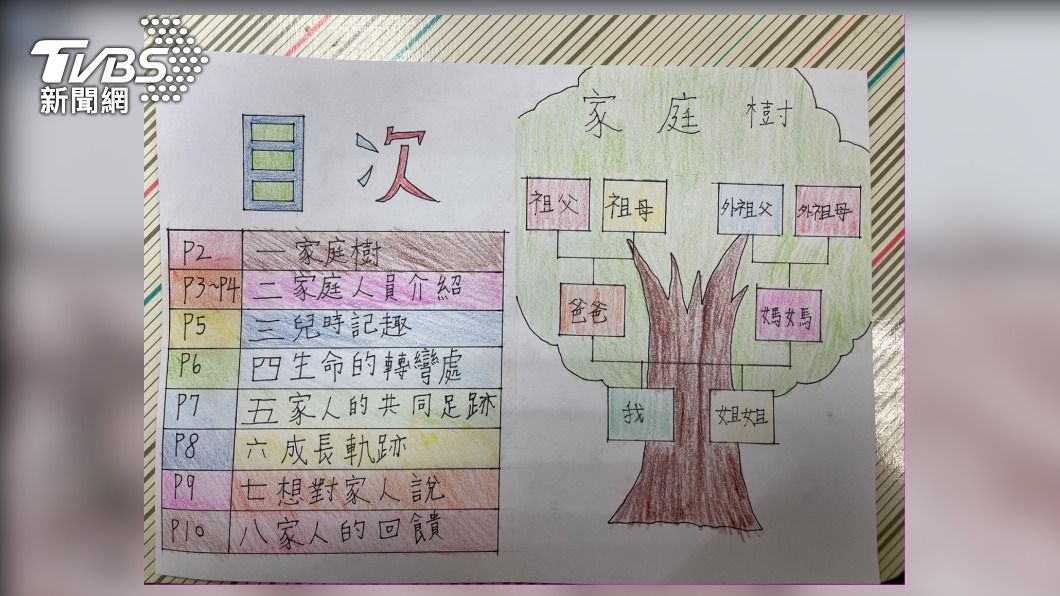 TVBS
新聞網
目次
P2 一家庭樹
P3~P4 二家庭人員介紹
P5 三兒時記趣
P6 四生命的轉彎處
P7 五家人的共同足跡
P8 六成長軌跡
P9 七想對家人說
P10 八家人的回饋
家庭樹
祖父 祖母 外祖父 外祖母
爸爸 媽媽
我 姐姐